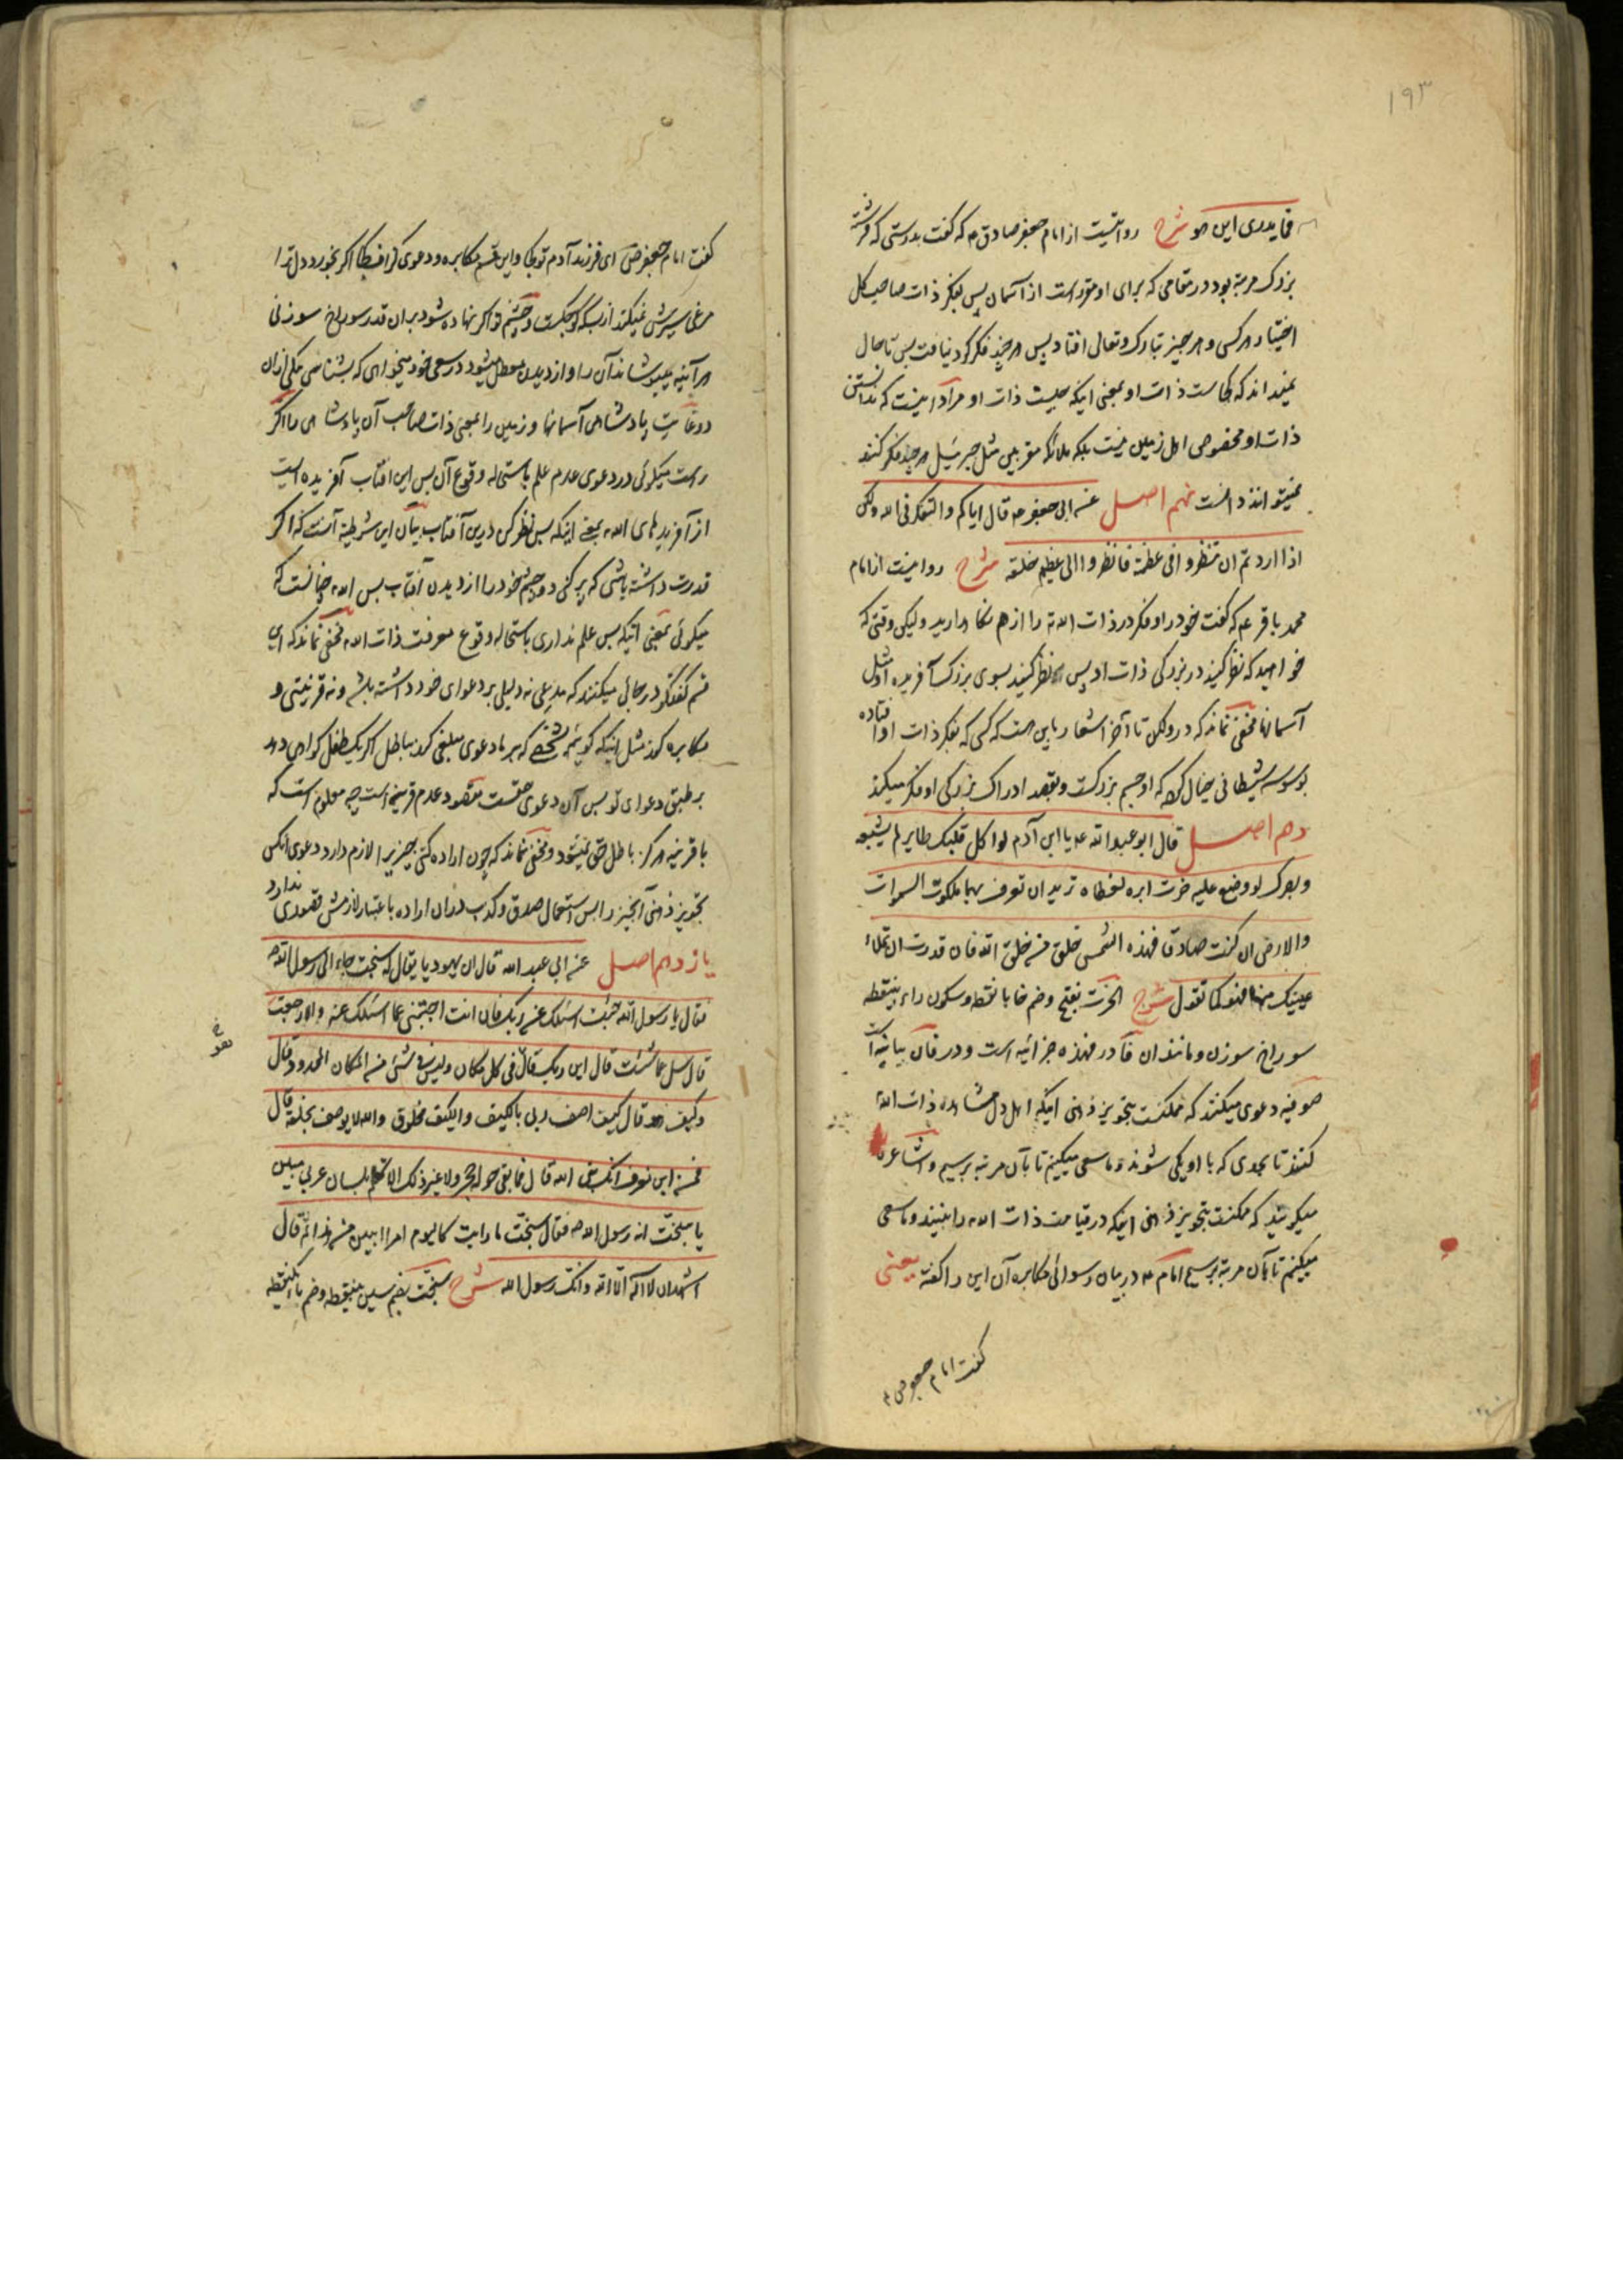 ۱۹۳
فما یدری این هو شرح روایتست از امام جعفر صادق ع که گفت بدرستی که فرشته
بزرک مرتبه بود در مقامی که برای او مقرر است از آسمان پس بفکر ذات صاحب کل
اختیار هر کس و هر چیز تبارک و تعالی افتاد پس هر چند فکر کرد نیافت پس تا حال
نمیداند که کجاست ذات او بمعنی اینکه چیست ذات او مراد اینست که ندانستن
ذات او مخصوص اهل زمین نیست بلکه ملائکه مقربین مثل جبرئیل هر چند فکر کنند
نمیتوانند دانست نهم اصل عن ابی جعفر ع قال ایاکم والتفکر فی الله ولکن
اذا اردتم ان تنظروا فی عظمته فانظروا الی عظیم خلقه شرح روایتست از امام
محمد باقر ع که گفت خود را و فکر در ذات الله را از هم نگاه دارید ولیکن وقتی که
خواهید که نظر کنید در بزرکی ذات او پس نظر کنید بسوی بزرک آفریده او مثل
آسمانها مخفی نماند که در ولکن تا آخر اشعار باین هست که کسی که بفکر ذات او افتاده
بوسوسه شیطانی خیال کرده که او جسم بزرکست و بقصد ادراک بزرکی او فکر میکند
دهم اصل قال ابو عبد الله ع یا ابن آدم لو اکل قلبک طایر لم یشبعه
وبصرک لو وضع علیه خرت ابرة لغطاه ترید ان تعرف بهما ملکوت السموات
والارض ان کنت صادقا فهذه الشمس خلق من خلق الله فان قدرت ان تملأ
عینیک منها فهو کما تقول شرح الخرت بفتح وضم خا با نقطه وسکون راء بینقطه
سوراخ سوزن و مانند آن فا در فهذه جزائیه است و در فان بیانیه است
صوفیه دعوی میکنند که ممکنست بتجویز ذهنی اینکه اهل دل مشاهده ذات الله
کنند تا بحدی که با او یکی شوند و ما سعی میکنیم تا بآن مرتبه برسیم و اشاعره
میکویند که ممکنست بتجویز ذهنی اینکه در قیامت ذات الله را بینند و ما سعی
میکنیم تا بآن مرتبه برسیم امام ع در بیان رسوائی مکابره آن این را گفته یعنی
گفت امام جعفر ص
گفت امام جعفر ص ای فرزند آدم تو کجا و این قسم مکابره و دعوی اکر بخورد دل ترا
مرغی سیرش نمیکند از بسکه کوچکست و چشم تو اکر نهاده شود بر آن قدر سوراخ سوزنی
هر آینه میپوشاند آن را و از دیدن معطل میشود در سعی خود میخواهی که بشناسی
دو غایت پادشاهی آسمانها و زمین را بمعنی ذات صاحب آن پادشاهی را اکر
راست میکوئی در دعوی عدم علم باستحاله وقوع آن پس این آفتاب آفریده ایست
از آفریدهای الله یعنی اینکه پس نظر کن درین آفتاب بیان این شرطیه آنست که اکر
قدرت داشته باشی که پر کنی دو چشم خود را از دیدن آفتاب پس الله چنانست که
میکوئی بمعنی اینکه پس علم نداری باستحاله وقوع معرفت ذات الله مخفی نماند که این
قسم گفتگو در جائی میکنند که مدعی نه دلیلی بر دعوای خود داشته باشد و نه قرینتی و
مکابره کند مثل اینکه کوئیم شخصی که بر ما دعوی مبلغی کند بباطل اکر یک طفل کواهی دهد
بر طبق دعوای تو پس آن دعوی حقست مقصود عدم قرینه است چه معلوم است که
با قرینه هرکز باطل حق نمیشود و مخفی نماند که چون اراده کنی چیزیرا لازم دارد دعوی آنکس
تجویز ذهنی آنچیز را پس استعمال صدق و کذب در آن اراده باعتبار لازمش قصوری ندارد
یازدهم اصل عن ابی عبد الله قال ان یهودیا یقال له سبخت جاء الی رسول الله
فقال یا رسول الله جئت اسئلک عن ربک فان انت اجبتنی عما اسئلک عنه والا رجعت
قال سل عما شئت قال این ربک قال فی کل مکان ولیس فی شئ من المکان المحدود قال
وکیف هو قال کیف اصف ربی بالکیف والکیف مخلوق والله لا یوصف بخلقه قال
فمن این نعرف انک نبی الله قال فما بقی حوله حجر ولا غیر ذلک الا تکلم بلسان عربی مبین
یا سبخت انه رسول الله فقال سبخت ما رایت کالیوم امرا ابین من هذا ثم قال
اشهد ان لا اله الا الله وانک رسول الله شرح سبخت بضم سین بینقطه وضم با یکنقطه